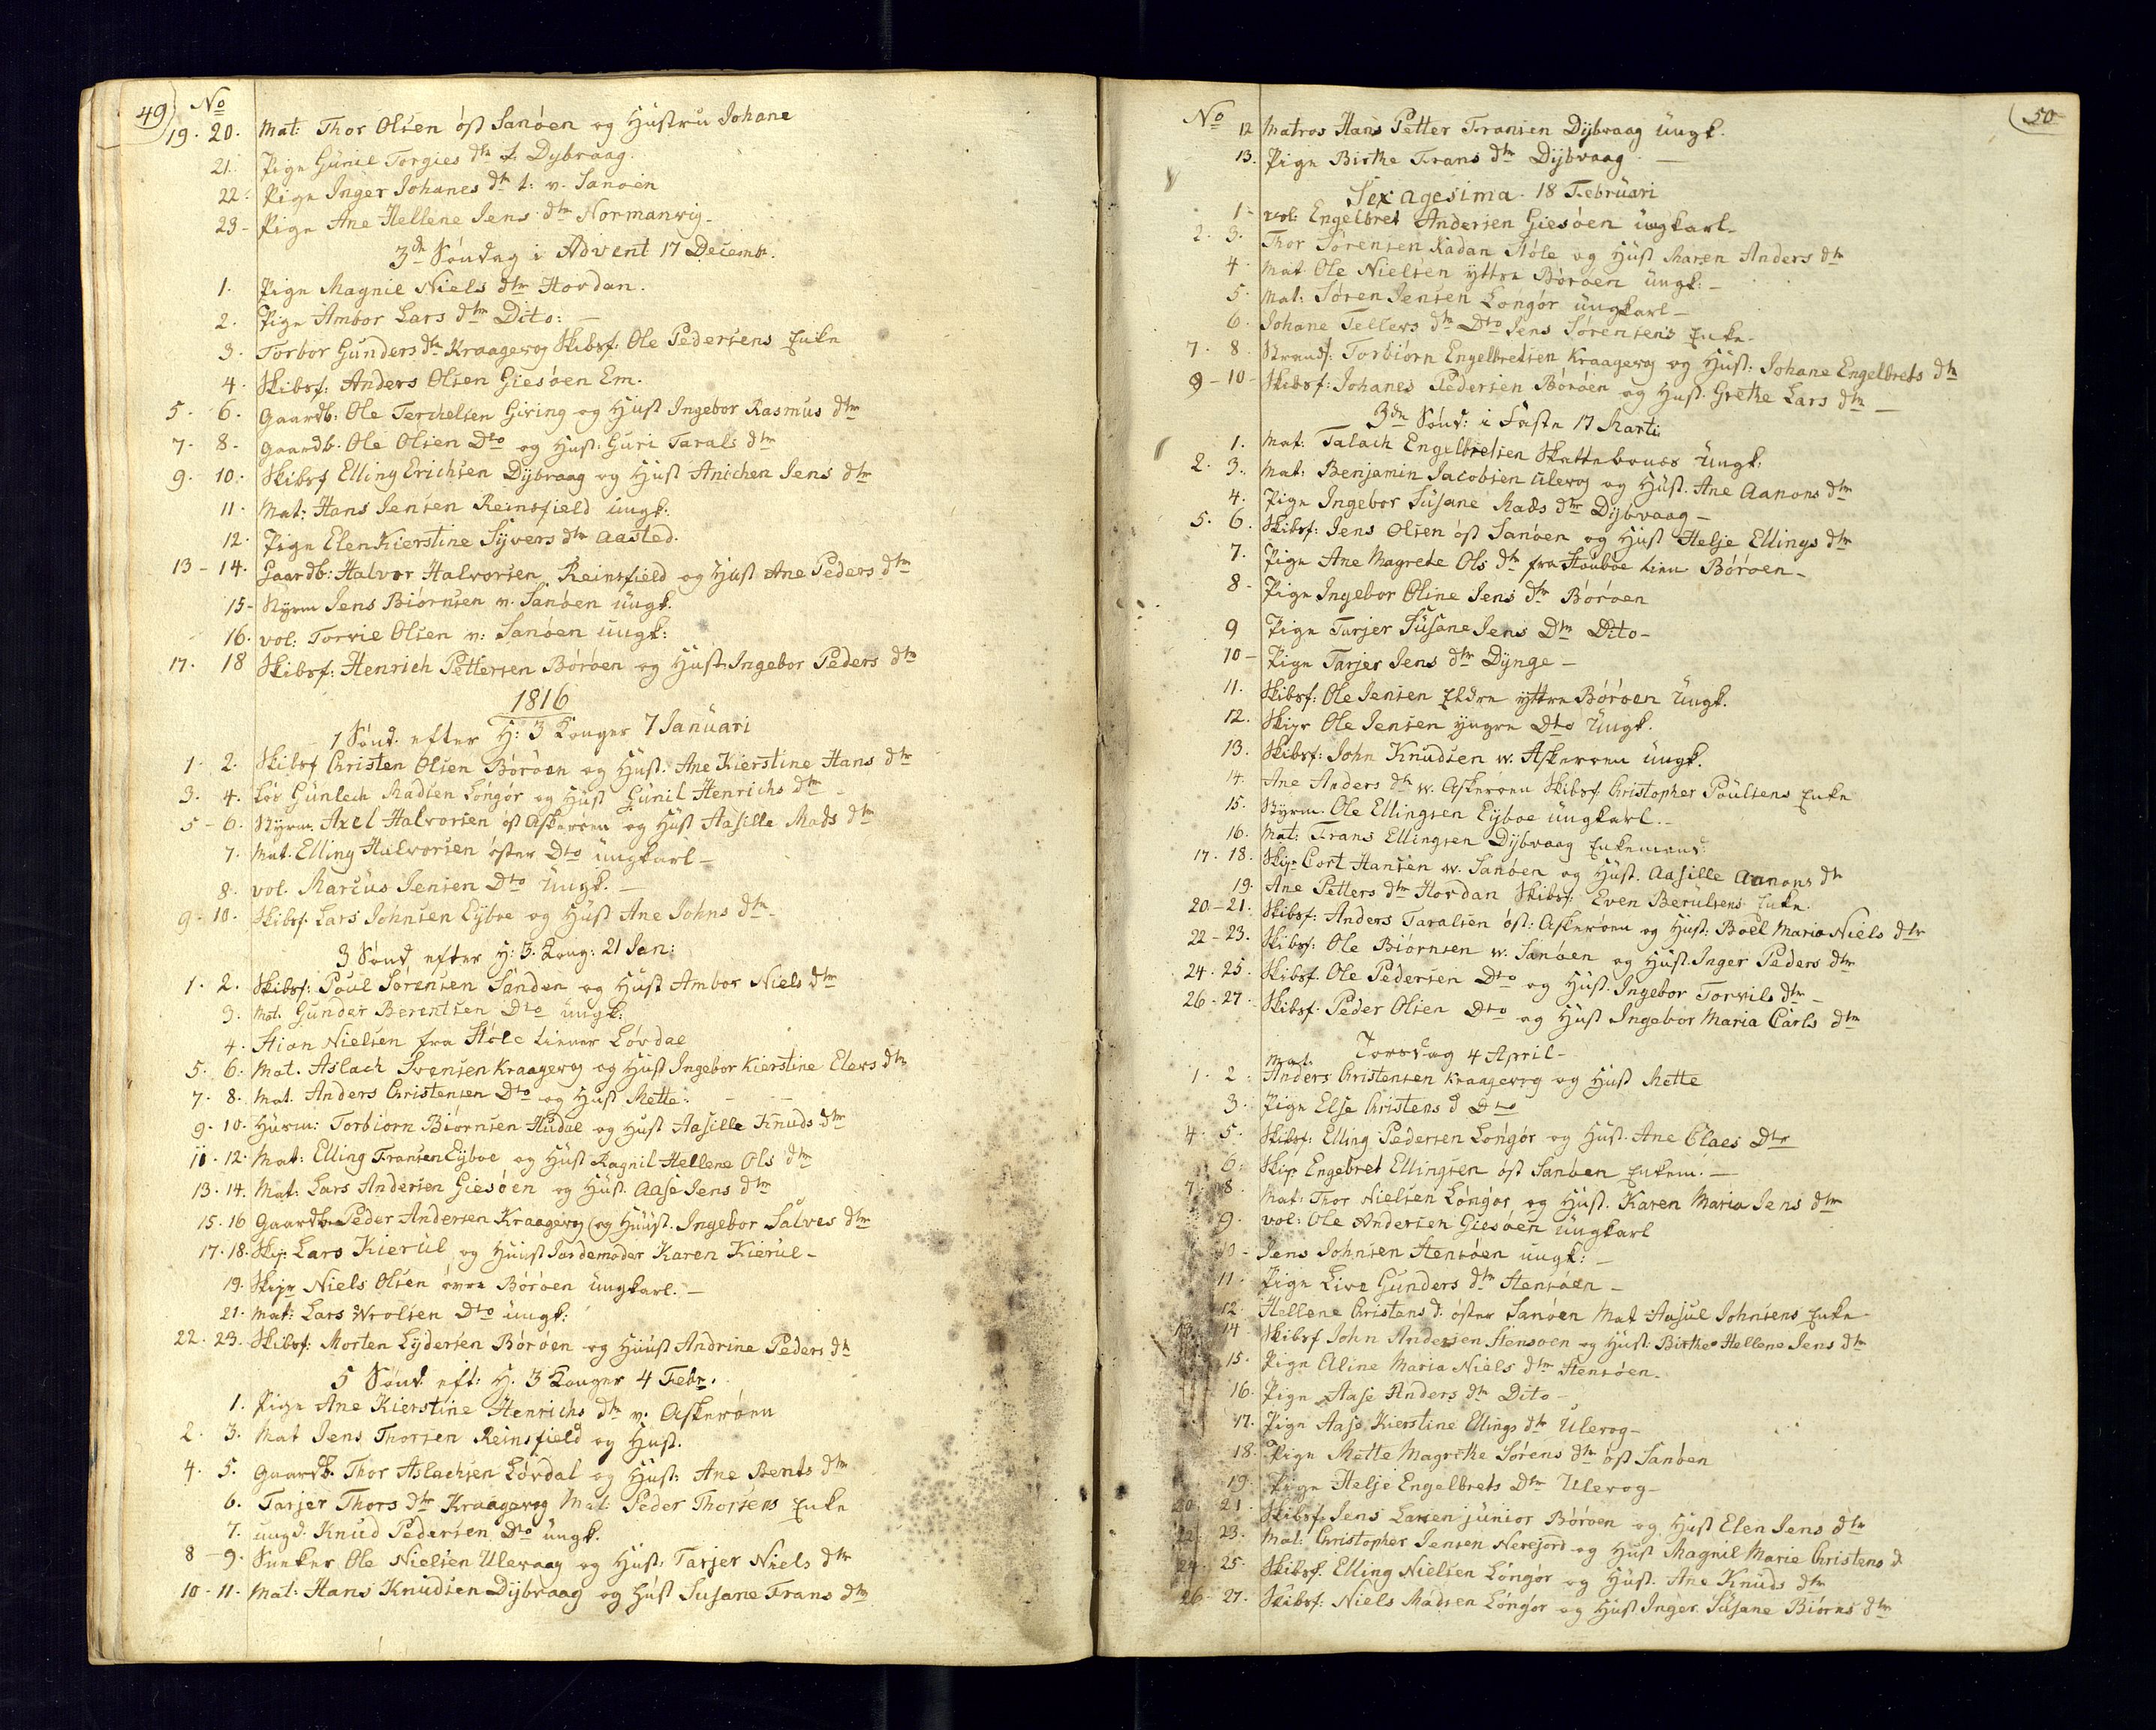 49
No
19. 20. Mat: Thor Olsen öst Sanöen og Hustru Johane
21. Pige Gunil Torgies dtr f. Dybvaag.
22. Pige Inger Johanes dtr v. Sanöen
23- Pige Ane Hellene Jens dtr Normanvig.
3de Söndag i Advent 17 Decembr.
1. Pige Magnil Niels dtr Hovdan.
2. Pige Ambor Lars dtr Dito: -
3. Torbor Gunders dtr Kraagevog Skibsf. Ole Pedersens Enke
4. Skibsf: Anders Olsen Giesöen Em.
5. 6. Gaardb: Ole Terchelsen Giving og Hust Ingebor Rasmus dtr
7. 8. Gaardb. Ole Olsen Dto og Hust: Guri Tarals dtr
9. 10. Skibsf Elling Erichsen Dijbvaag og Hust Anichen Jens dtr
11. Mat: Hans Jensen Reinsfield ungk:
12. Pige Elen Kierstine Sijvers dtr Aasted.
13 - 14. Gaardb: Halvor Halvorsen Reinsfield og Hust Ane Peders dtr
15- Styrm Jens Biörnsen v. Sanöen ungk.
16. vol: Torvie Olsen v: Sanöen ungk:
17. 18 Skibsf: Henrich Pettersen Böröen og Hust. Ingebor Peders dtr
1816
1 Sönd. efter H: 3 Konger 7 Januari
1. 2. Skibsf Christen Olsen Böröen og Hust. Ane Kierstine Hans dtr
3. 4. Los Gunlech Madsen Longör og Hust Gunil Henrichs dtr
5 - 6. Styrm. Axel Halvorsen öst Askeröen og Hust Aasille Mads dtr
7. Mat. Elling Halvorsen öster Dto ungkarl -
8. vol. Marcus Jensen Dto Ungk. -
9 - 10. Skibsf. Lars Johnsen Eijboe og Hust Ane Johns dtr
3 Sönd efter H: 3. Kong: 21 Jan:
1. 2. Skibsf: Poul Sörensen Sanden og Hust Ambor Niels dtr
3. Mat. Gunder Berentsen Dto ungk:
4. Stian Nielsen fra Stöle Liener Lövdal
5. 6. Mat. Aslach Svensen Kraagevog og Hust Ingebor Kierstine Elevs dtr
7. 8. Mat. Anders Christensen Dto og Hust Mette: - -
9. 10. Husm: Torbiorn Biörnsen Hudal og Hust Aasille Knuds dtr
11. 12. Mat: Elling Fransen Eijboe og Hust Ragnil Hellene Ols dtr
13. 14. Mat: Lars Andersen Giesöen og Hust. Aase Jens dtr
15. 16 Gaardbr Peder Andersen Kraagevog og Huust. Ingebor Salves dtr
17. 18. Skip. Lars Kierul og Huust Jordemoder Karen Kierul -
19. Skipr Niels Olsen övre Böröen ungkarl. -
21. Mat: Lars Wrolsen Dto ungk:
22. 23. Skibsf: Morten Lydersen Böröen og Huust Andrine Peders dtr
5 Sönd. eft: H. 3 Konger 4 Febr.
1. Pige Ane Kierstine Henrichs dtr v. Askeröen
2. 3. Mat Jens Thorsen Reinsfield og Hust.
4. 5. Gaardb. Thor Aslachsen Lövdal og Hust: Ane Bents dtr
6. Tarjer Thors dtr Kraagevog Mat: Peder Thorsens Enke
7. ungd. Knud Pedersen Dto ungk.
8 - 9. Sneker Ole Nielsen Ulevaag og Hust: Tarjer Niels dtr
10 - 11. Mat: Hans Knudsen Dijbvaag og Hust Susane Frans dtr
50
No
12 Matros Hans Petter Fransen Dijbvaag Ungk.
13. Pige Birthe Frans dtr Dijbvaag -
Sexagesima. 18 Februari
1- vol: Engelbret Andersen Giesöen ungkarl-
2. 3. Thor Sörensen Stöle og Hust Maren Anders dtr
4. Mat Ole Nielsen yttre Böröen ungk: -
5. Mat: Sören Jensen Longör ungkarl -
6. Johane Tellevs dtr Dto Jens Sörensens Enke.
7. 8. Strands: Torbiörn Engelbretsen Kraagevog og Hust. Johane Engelbrets dtr
9 - 10 - Skibsf: Johanes Pedersen Böröen og Hust. Grethe Lars dtr -
3de Sönd: i Faste 17 Marti
1. Mat: Talach Engelbretsen Skattebonæs Ungk:
2. 3. Mat: Benjamin Jacobsen Ulevog og Hust. Ane Aanons dtr
4. Pige Ingebor Susane Mads dtr Dijbvaag -
5. 6. Skibsf: Jens Olsen öst Sanöen og Hust Helje Ellings dtr
7. Pige Ane Magrete Ols dtr fra Stouboe Lien Böröen -
8 - Pige Ingebor Oline Jens dtr Böröen
9 Pige Tarjer Susane Jens Dtr Dito-
10 - Pige Tarjer Jens dtr Dynge -
11. Skibsf: Ole Jensen Eldre yttre Böröen Ungk.
12. Skipr Ole Jensen yngre Dto Ungk.
13. Skibsf: John Knudsen w. Askeröen ungk.
14. Ane Anders dtr w. Askeröen Skibsf Christopher Poulsens Enke
15. Styrm. Ole Ellingsen Eijboe ungkarl.-
16. Mat: Frans Ellingsen Dijbvaag Enkemand.
17. 18. Skipr Cort Hansen w. Sanöen og Hust. Aasille Aanons dtr
19. Ane Petters dtr Hovdan Skibsf: Even Berulsens Enke.
20 - 21. Skibsf: Anders Taralsen öst: Askeröen og Hust: Boel Maria Niels dtr
22 - 23. Skibsf: Ole Biörnsen w. Sanöen og Hust. Inger Peders dtr
24. 25. Skibsf. Ole Pedersen Dto og Hust. Ingebor Torvils dtr -
26 - 27. Skibsf. Peder Olsen Dto og Hust Ingebor Maria Carls dtr
Torsdag 4 April -
1. 2. Mat. Anders Christensen Kraagevog og Hust Mette
3. Pige Else Christens d Dto
4. 5. Skibsf: Elling Pedersen Longör og Hust. Ane Claes Dtr
6. Skip Engebret Ellingsen öst Sanöen Enkem. -
7. 8. Mat: Thor Nielsen Longör og Hust. Karen Maria Jens dtr
9. vol: Ole Andersen Giesöen ungkarl
10 - Jens Johnsen Stensöen ungk: -
11. Pige Live Gunders dtr Stensöen -
12. Hellene Christens d: öster Sanöen Mat Aasul Johnsens Enke
13. 14 Skibsf John Andersen Stensöen og Hust: Birthe Hellene Jens dtr
15. Pige Aline Maria Niels dtr Stensöen.
16. Pige Aase Anders dtr Dito -
17. Pige Aase Kierstine Ellings dtr Ulevog-
18. Pige Mette Magrethe Sörens dtr öst Sanöen
19. Pige Helje Engelbrets Dtr Ulevog-
20. 21. Skibsf. Jens Larsen junior Böröen og Hust Elen Jens dtr
22. 23. Mat: Christopher Jensen Nerejord og Hust Magnil Marie Christens d
24. 25. Skibsf. Elling Nielsen Longör og Hust. Ane Knuds dtr
26 - 27. Skibsf: Niels Madsen Longör og Hust Inger Susane Biörns dtr